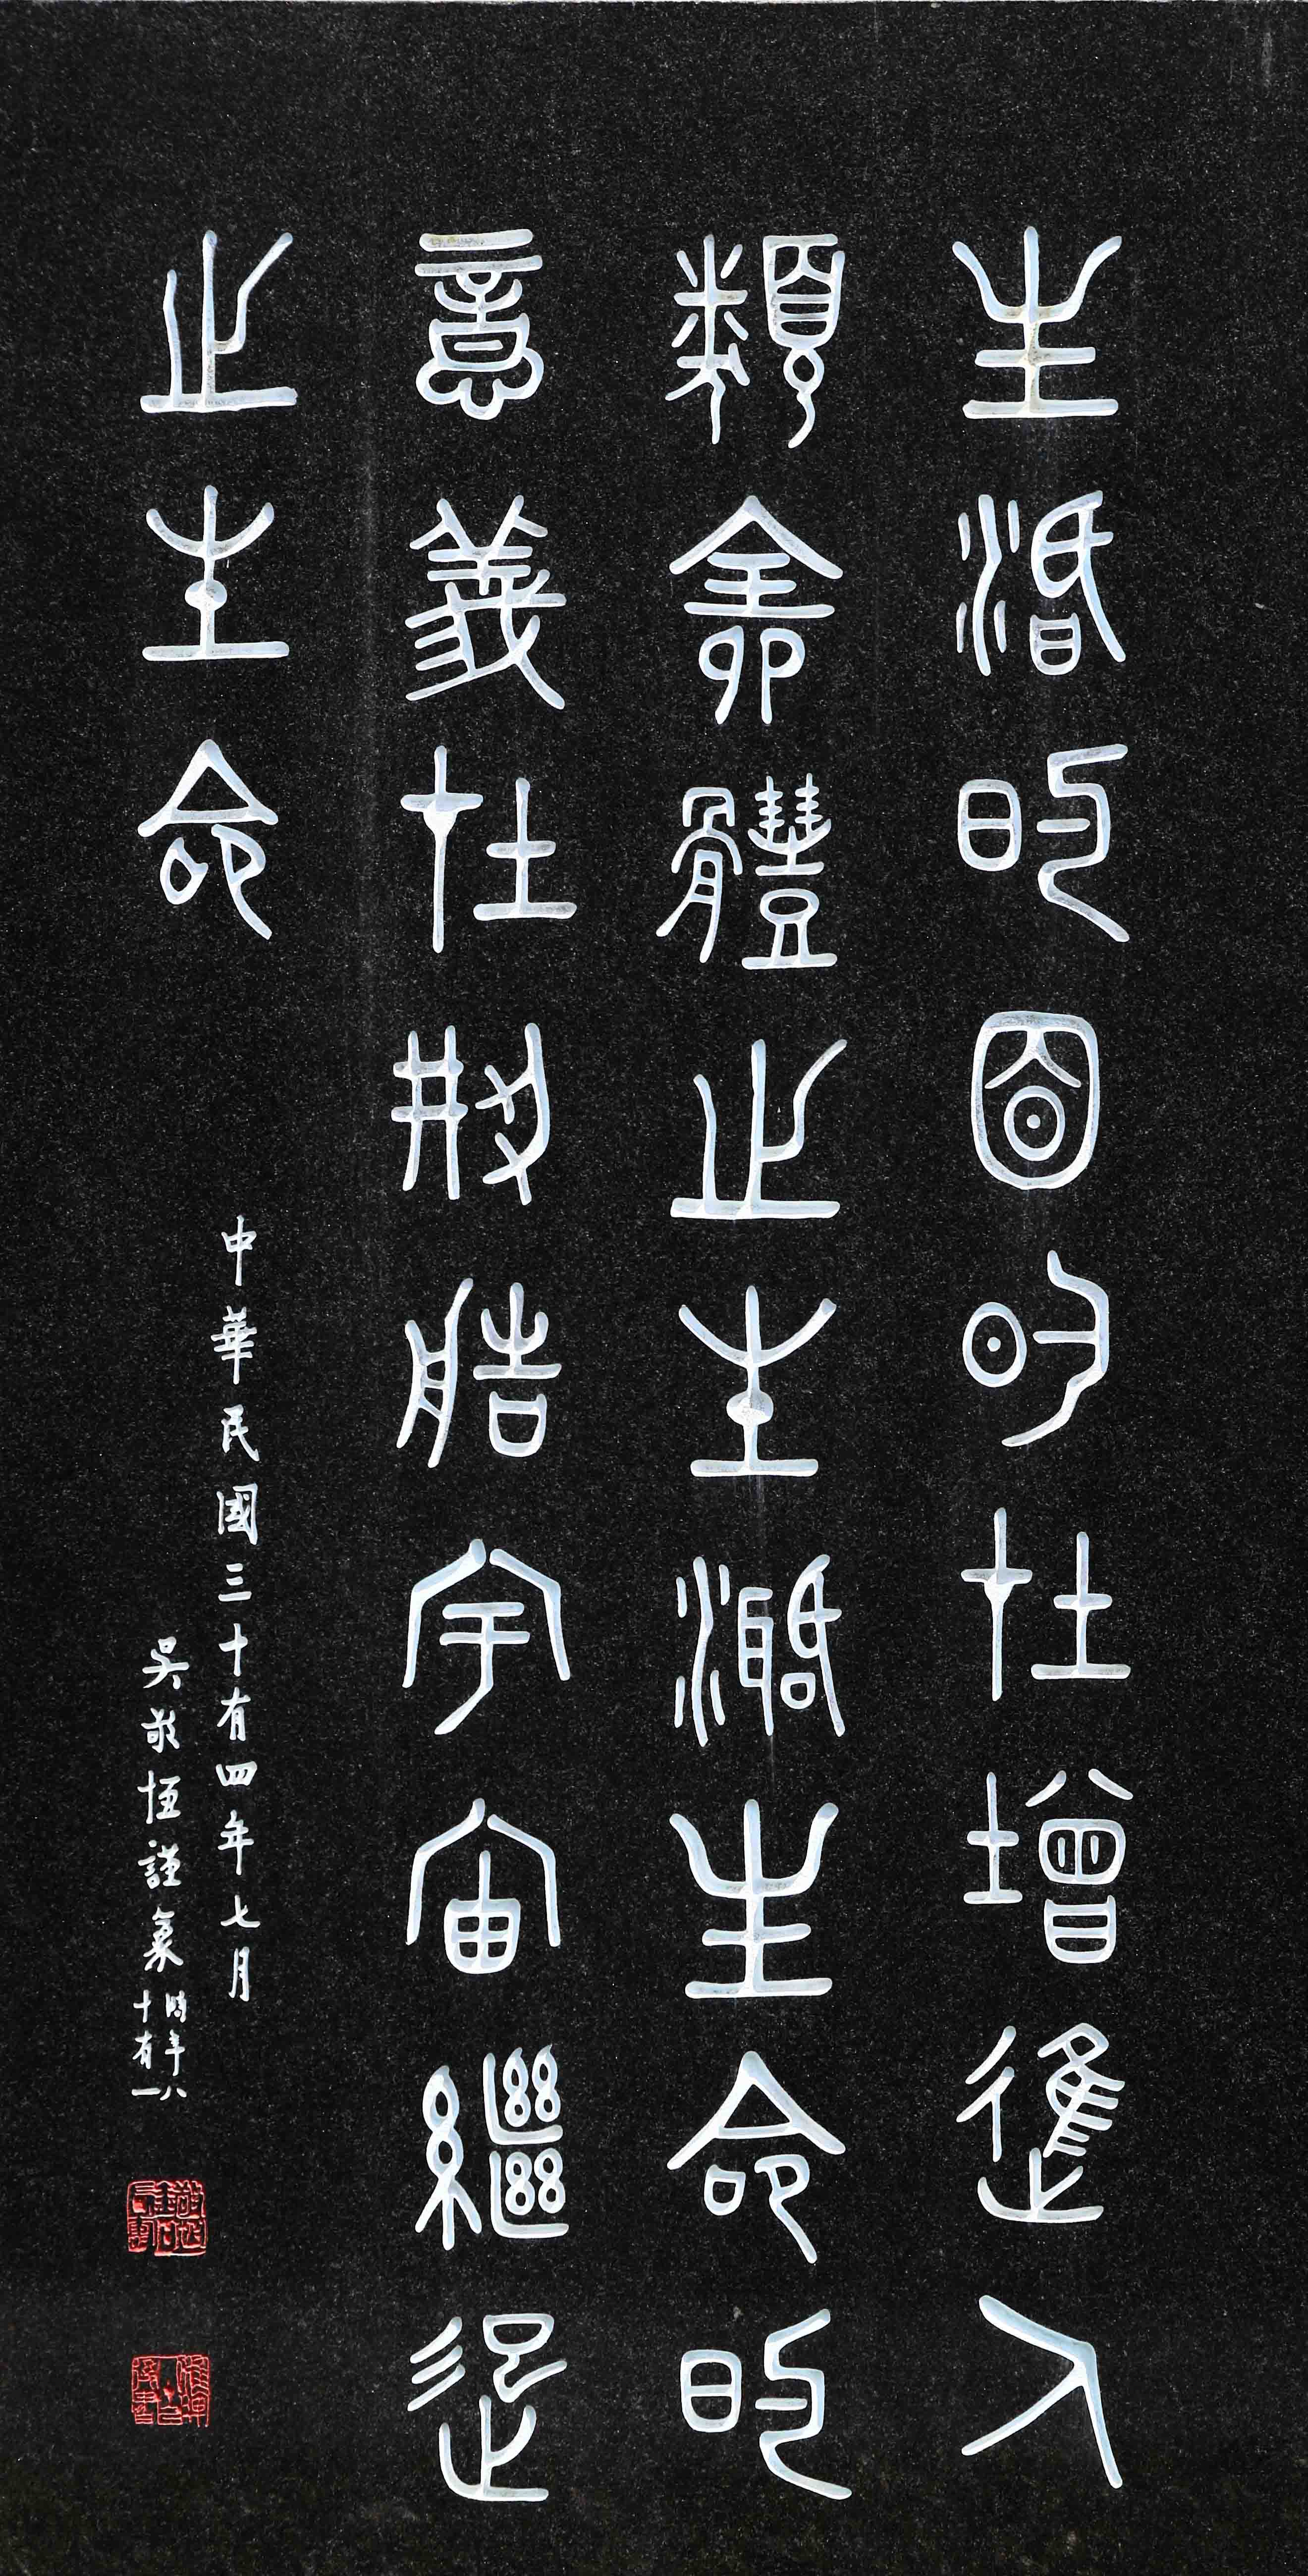 生活的目的在增進人
類全體之生活生命的
意義在創造宇宙繼起
之生命
中華民國三十有四年七月
吳敬恆謹篆時年八
十有一